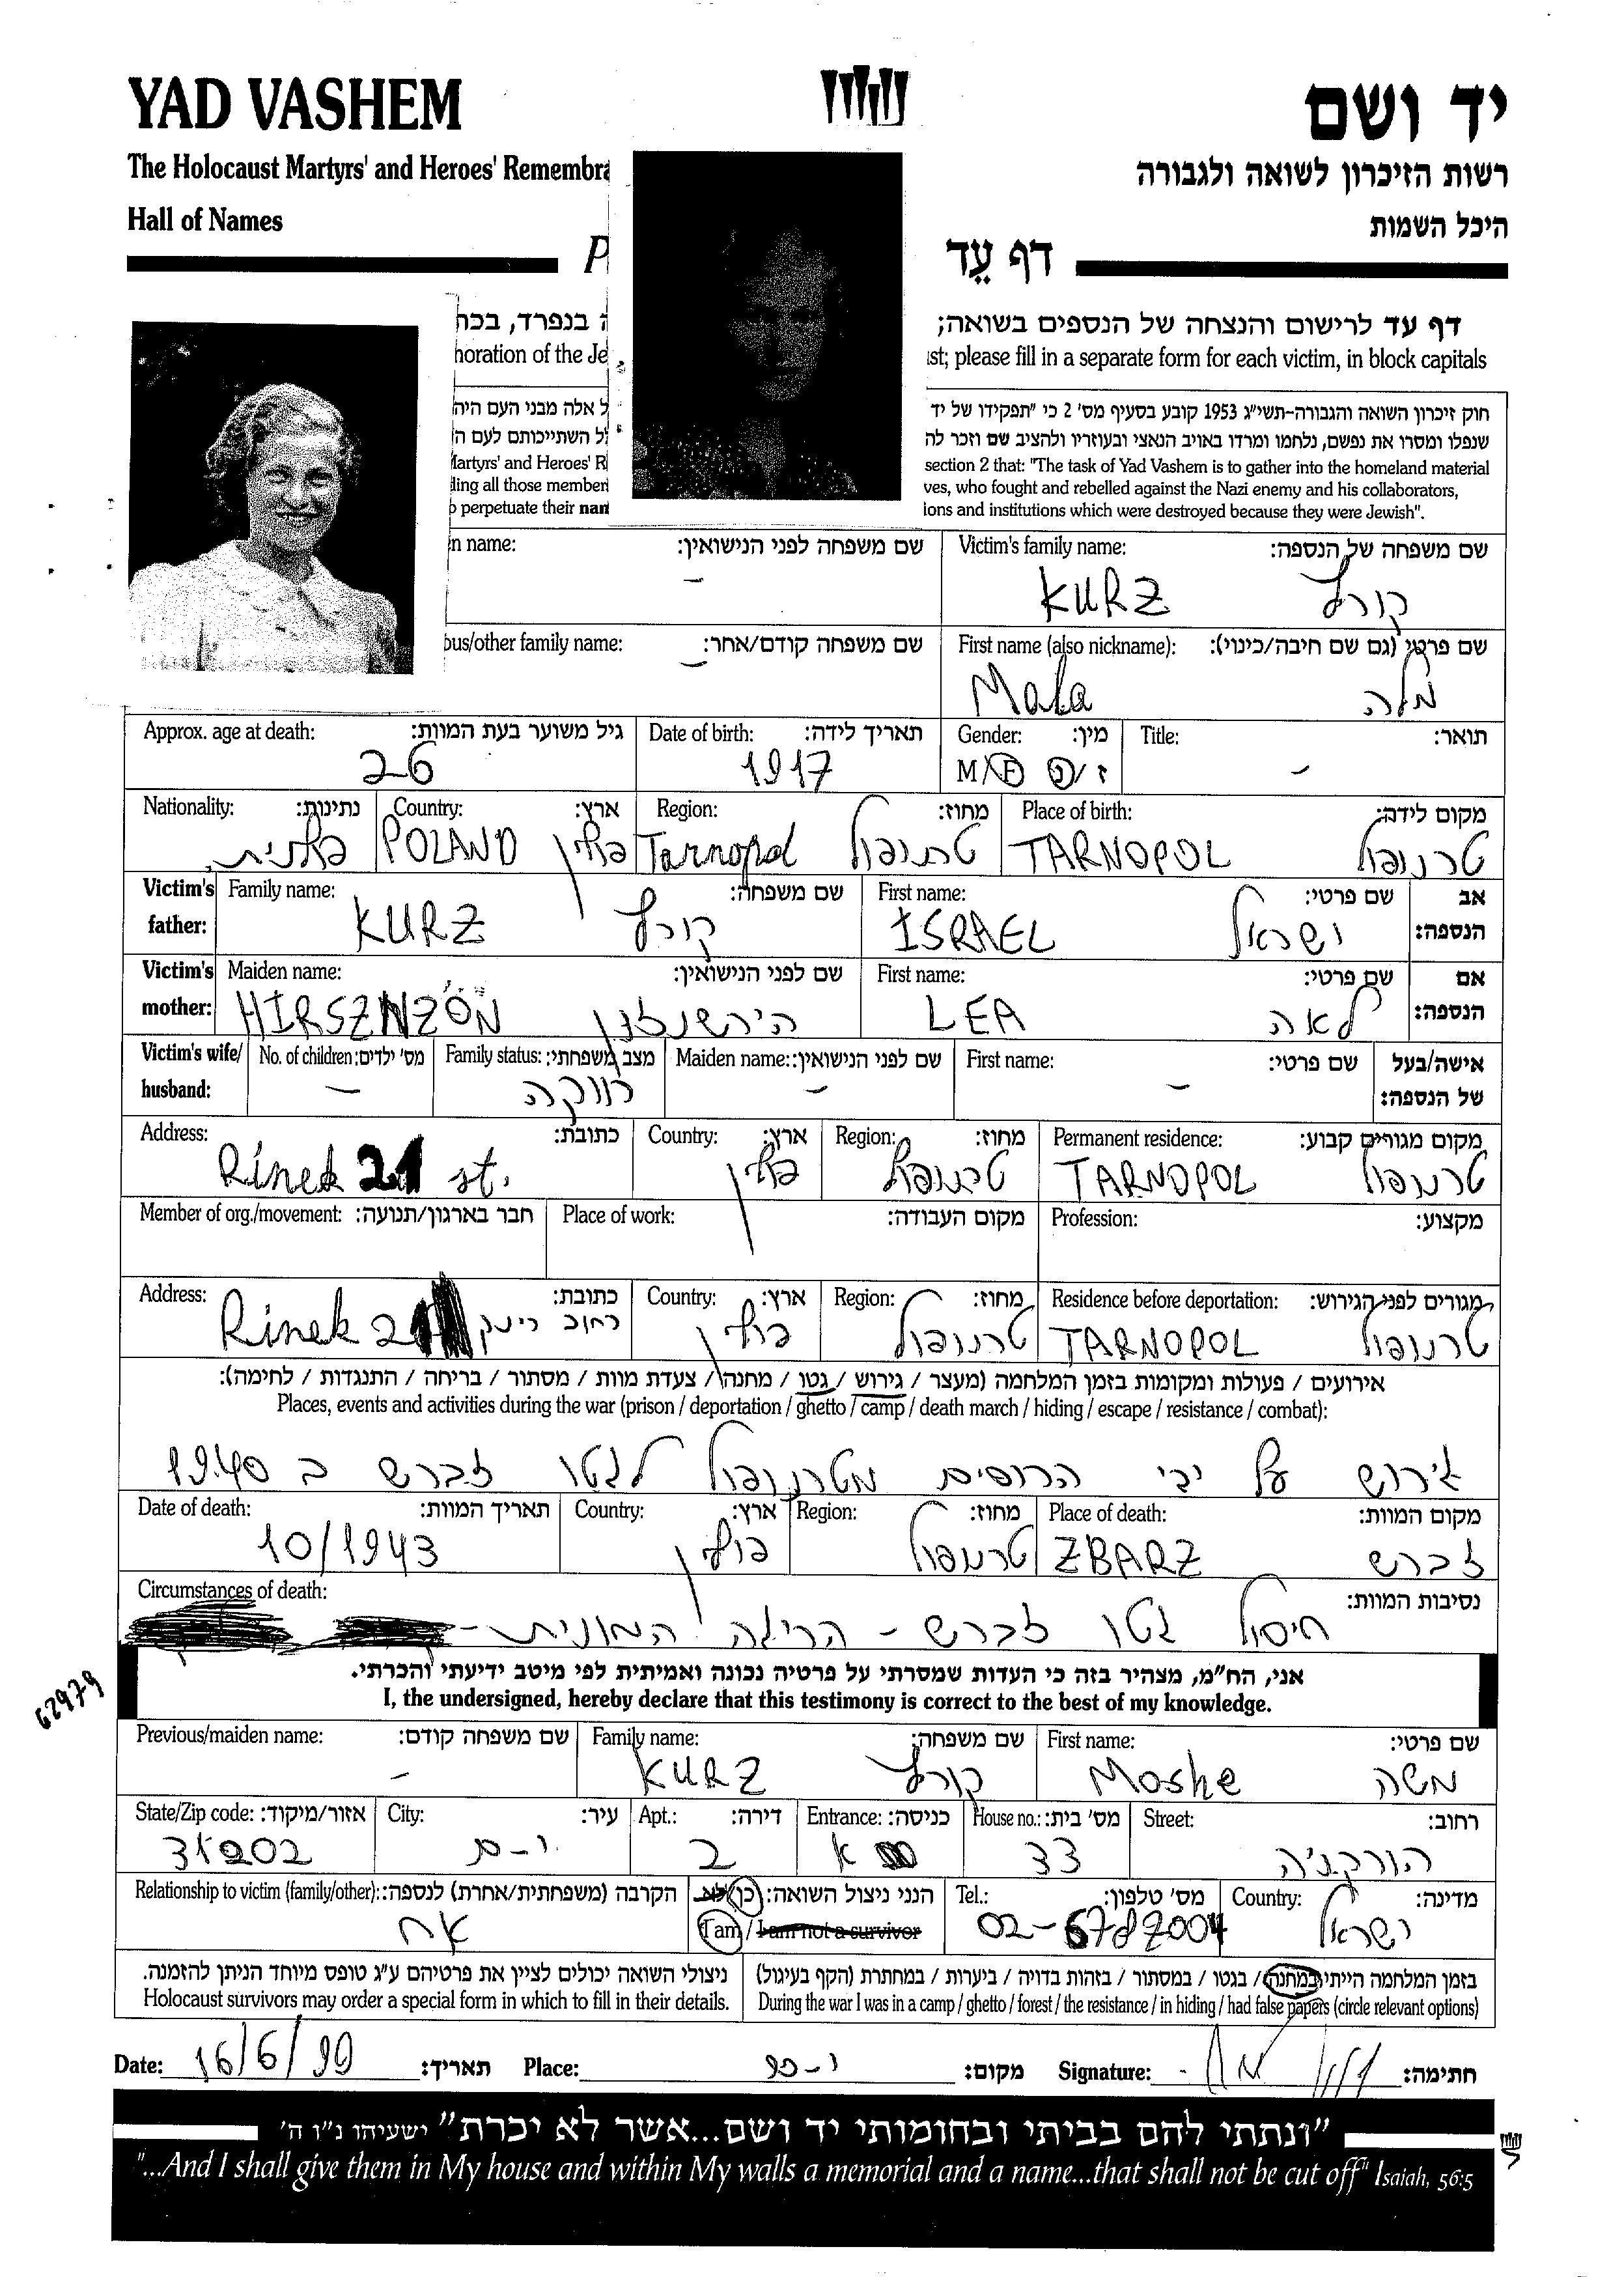 YAD VASHEM
יד ושם
The Holocaust Martyrs' and Heroes' Remembra
רשות הזיכרון לשואה ולגבורה
Hall of Names
היכל השמות
P
דף עֵד
דף עד לרישום והנצחה של הנספים בשואה;
ה בנפרד, בכת
noration of the Je
ıst; please fill in a separate form for each victim, in block capitals
חוק זיכרון השואה והגבורה-תשי״ג 1953 קובע בסעיף מס' 2 כי "תפקידו של יד
ל אלה מבני העם היה
שנפלו ומסרו את נפשם, נלחמו ומרדו באויב הנאצי ובעוזריו ולהציב שם וזכר לה
לל השתייכותם לעם ה
Martyrs' and Heroes' R
section 2 that: "The task of Yad Vashem is to gather into the homeland material
ling all those member
ves, who fought and rebelled against the Nazi enemy and his collaborators,
o perpetuate their nam
ions and institutions which were destroyed because they were Jewish".
שם משפחה של הנספה: Victim's family name:
שם משפחה לפני הנישואין: n name:
קורץ KURZ
–
שם פרטי (גם שם חיבה/כינוי): First name (also nickname):
שם משפחה קודם/אחר: ous/other family name:
מלה Mala
–
תואר: Title: מין: Gender: תאריך לידה: Date of birth: גיל משוער בעת המוות: Approx. age at death:
– ז/נ M/F 1917 26
מקום לידה: Place of birth: מחוז: Region: ארץ: Country: נתינות: Nationality:
טרנופול TARNOPOL טרנופול Tarnopol פולין POLAND פולנית
אב הנספה: שם פרטי: First name: שם משפחה: Family name: Victim's father:
ישראל ISRAEL קורץ KURZ
אם הנספה: שם פרטי: First name: שם לפני הנישואין: Maiden name: Victim's mother:
לאה LEA הירשנזון HIRSZNZON
אישה/בעל של הנספה: שם פרטי: First name: שם לפני הנישואין: Maiden name: מצב משפחתי: Family status: מס' ילדים: No. of children: Victim's wife/ husband:
– – רווקה –
מקום מגורים קבוע: Permanent residence: מחוז: Region: ארץ: Country: כתובת: Address:
טרנופול TARNOPOL טרנופול פולין Rinek 21 st.
מקצוע: Profession: מקום העבודה: Place of work: חבר בארגון/תנועה: Member of org./movement:
מגורים לפני הגירוש: Residence before deportation: מחוז: Region: ארץ: Country: כתובת: Address:
טרנופול TARNOPOL טרנופול פולין רחוב רינק Rinek 21
אירועים / פעולות ומקומות בזמן המלחמה (מעצר / גירוש / גטו / מחנה / צעדת מוות / מסתור / בריחה / התנגדות / לחימה):
Places, events and activities during the war (prison / deportation / ghetto / camp / death march / hiding / escape / resistance / combat):
גירוש על ידי הרוסים מטרנופול לגטו זברש ב 1940
מקום המוות: Place of death: מחוז: Region: ארץ: Country: תאריך המוות: Date of death:
זברש ZBARZ טרנופול פולין 10/1943
נסיבות המוות: Circumstances of death:
חיסול גטו זברש - הריגה המונית -
62979
אני, הח״מ, מצהיר בזה כי העדות שמסרתי על פרטיה נכונה ואמיתית לפי מיטב ידיעתי והכרתי.
I, the undersigned, hereby declare that this testimony is correct to the best of my knowledge.
שם פרטי: First name: שם משפחה: Family name: שם משפחה קודם: Previous/maiden name:
משה Moshe קורץ KURZ –
רחוב: Street: מס' בית: House no.: כניסה: Entrance: דירה: Apt.: עיר: City: אזור/מיקוד: State/Zip code:
הורקניה 33 א 2 י-ם
מדינה: Country: מס' טלפון: Tel.: הנני ניצול השואה: כן/לא הקרבה (משפחתית/אחרת) לנספה: Relationship to victim (family/other):
ישראל 02-6787004 I am / I am not a survivor אח
בזמן המלחמה הייתי במחנה / בגטו / במסתור / בזהות בדויה / ביערות / במחתרת (הקף בעיגול)
ניצולי השואה יכולים לציין את פרטיהם ע״ג טופס מיוחד הניתן להזמנה.
During the war I was in a camp / ghetto / forest / the resistance / in hiding / had false papers (circle relevant options)
Holocaust survivors may order a special form in which to fill in their details.
Date: 16/6/99 תאריך: Place: י-ם מקום: Signature: חתימה:
"ונתתי להם בביתי ובחומותי יד ושם...אשר לא יכרת" ישעיהו נ״ו ה'
"...And I shall give them in My house and within My walls a memorial and a name...that shall not be cut off" Isaiah, 56:5